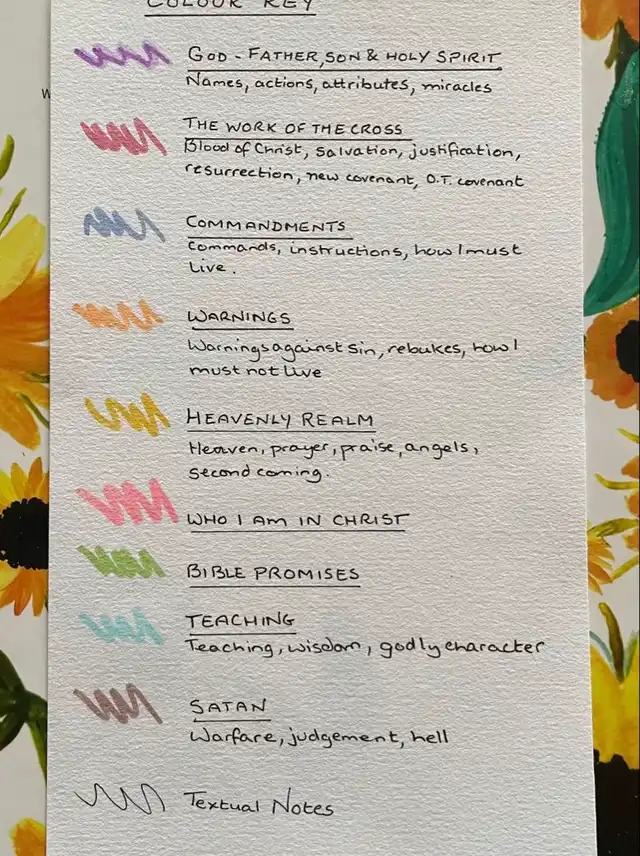 COLOUR KEY
W
GOD - FATHER, SON & HOLY SPIRIT
Names, actions, attributes, miracles
THE WORK OF THE CROSS
Blood of Christ, salvation, justification,
resurrection, new covenant, O.T. covenant
COMMANDMENTS
Commands, instructions, how I must
live.
WARNINGS
Warnings against sin, rebukes, how I
must not live
HEAVENLY REALM
Heaven, prayer, praise, angels,
second coming.
WHO I AM IN CHRIST
BIBLE PROMISES
TEACHING
Teaching, wisdom, godly character
SATAN
Warfare, judgement, hell
Textual Notes